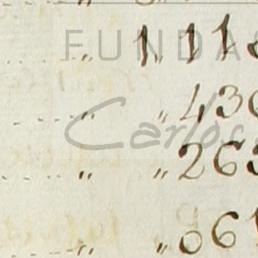 FUNDA
„ 1113
„ „ 430
Carlos
„ „ 263
„ „ 061